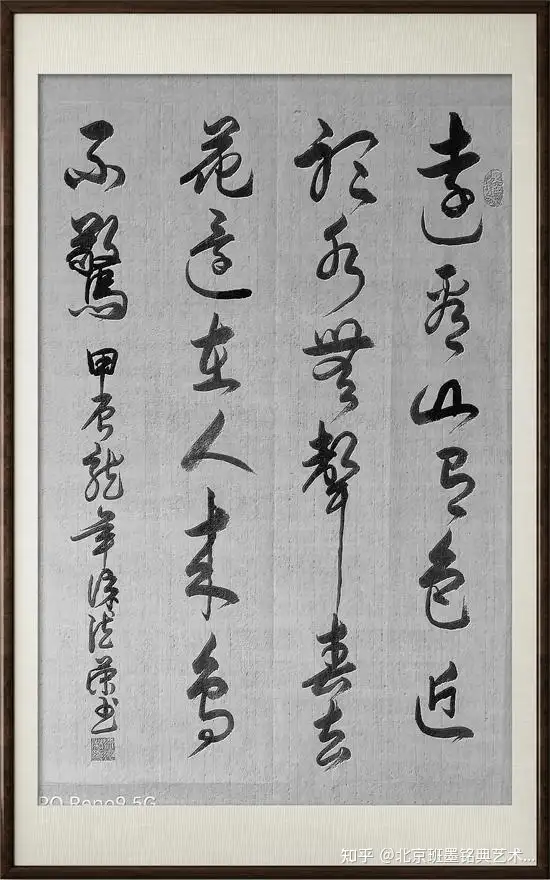 遠看山有色近
聽水無聲春去
花還在人來鳥
不驚 甲辰龍年 法荣书
PO Reno9 5G
知乎 @北京班墨铭典艺术...